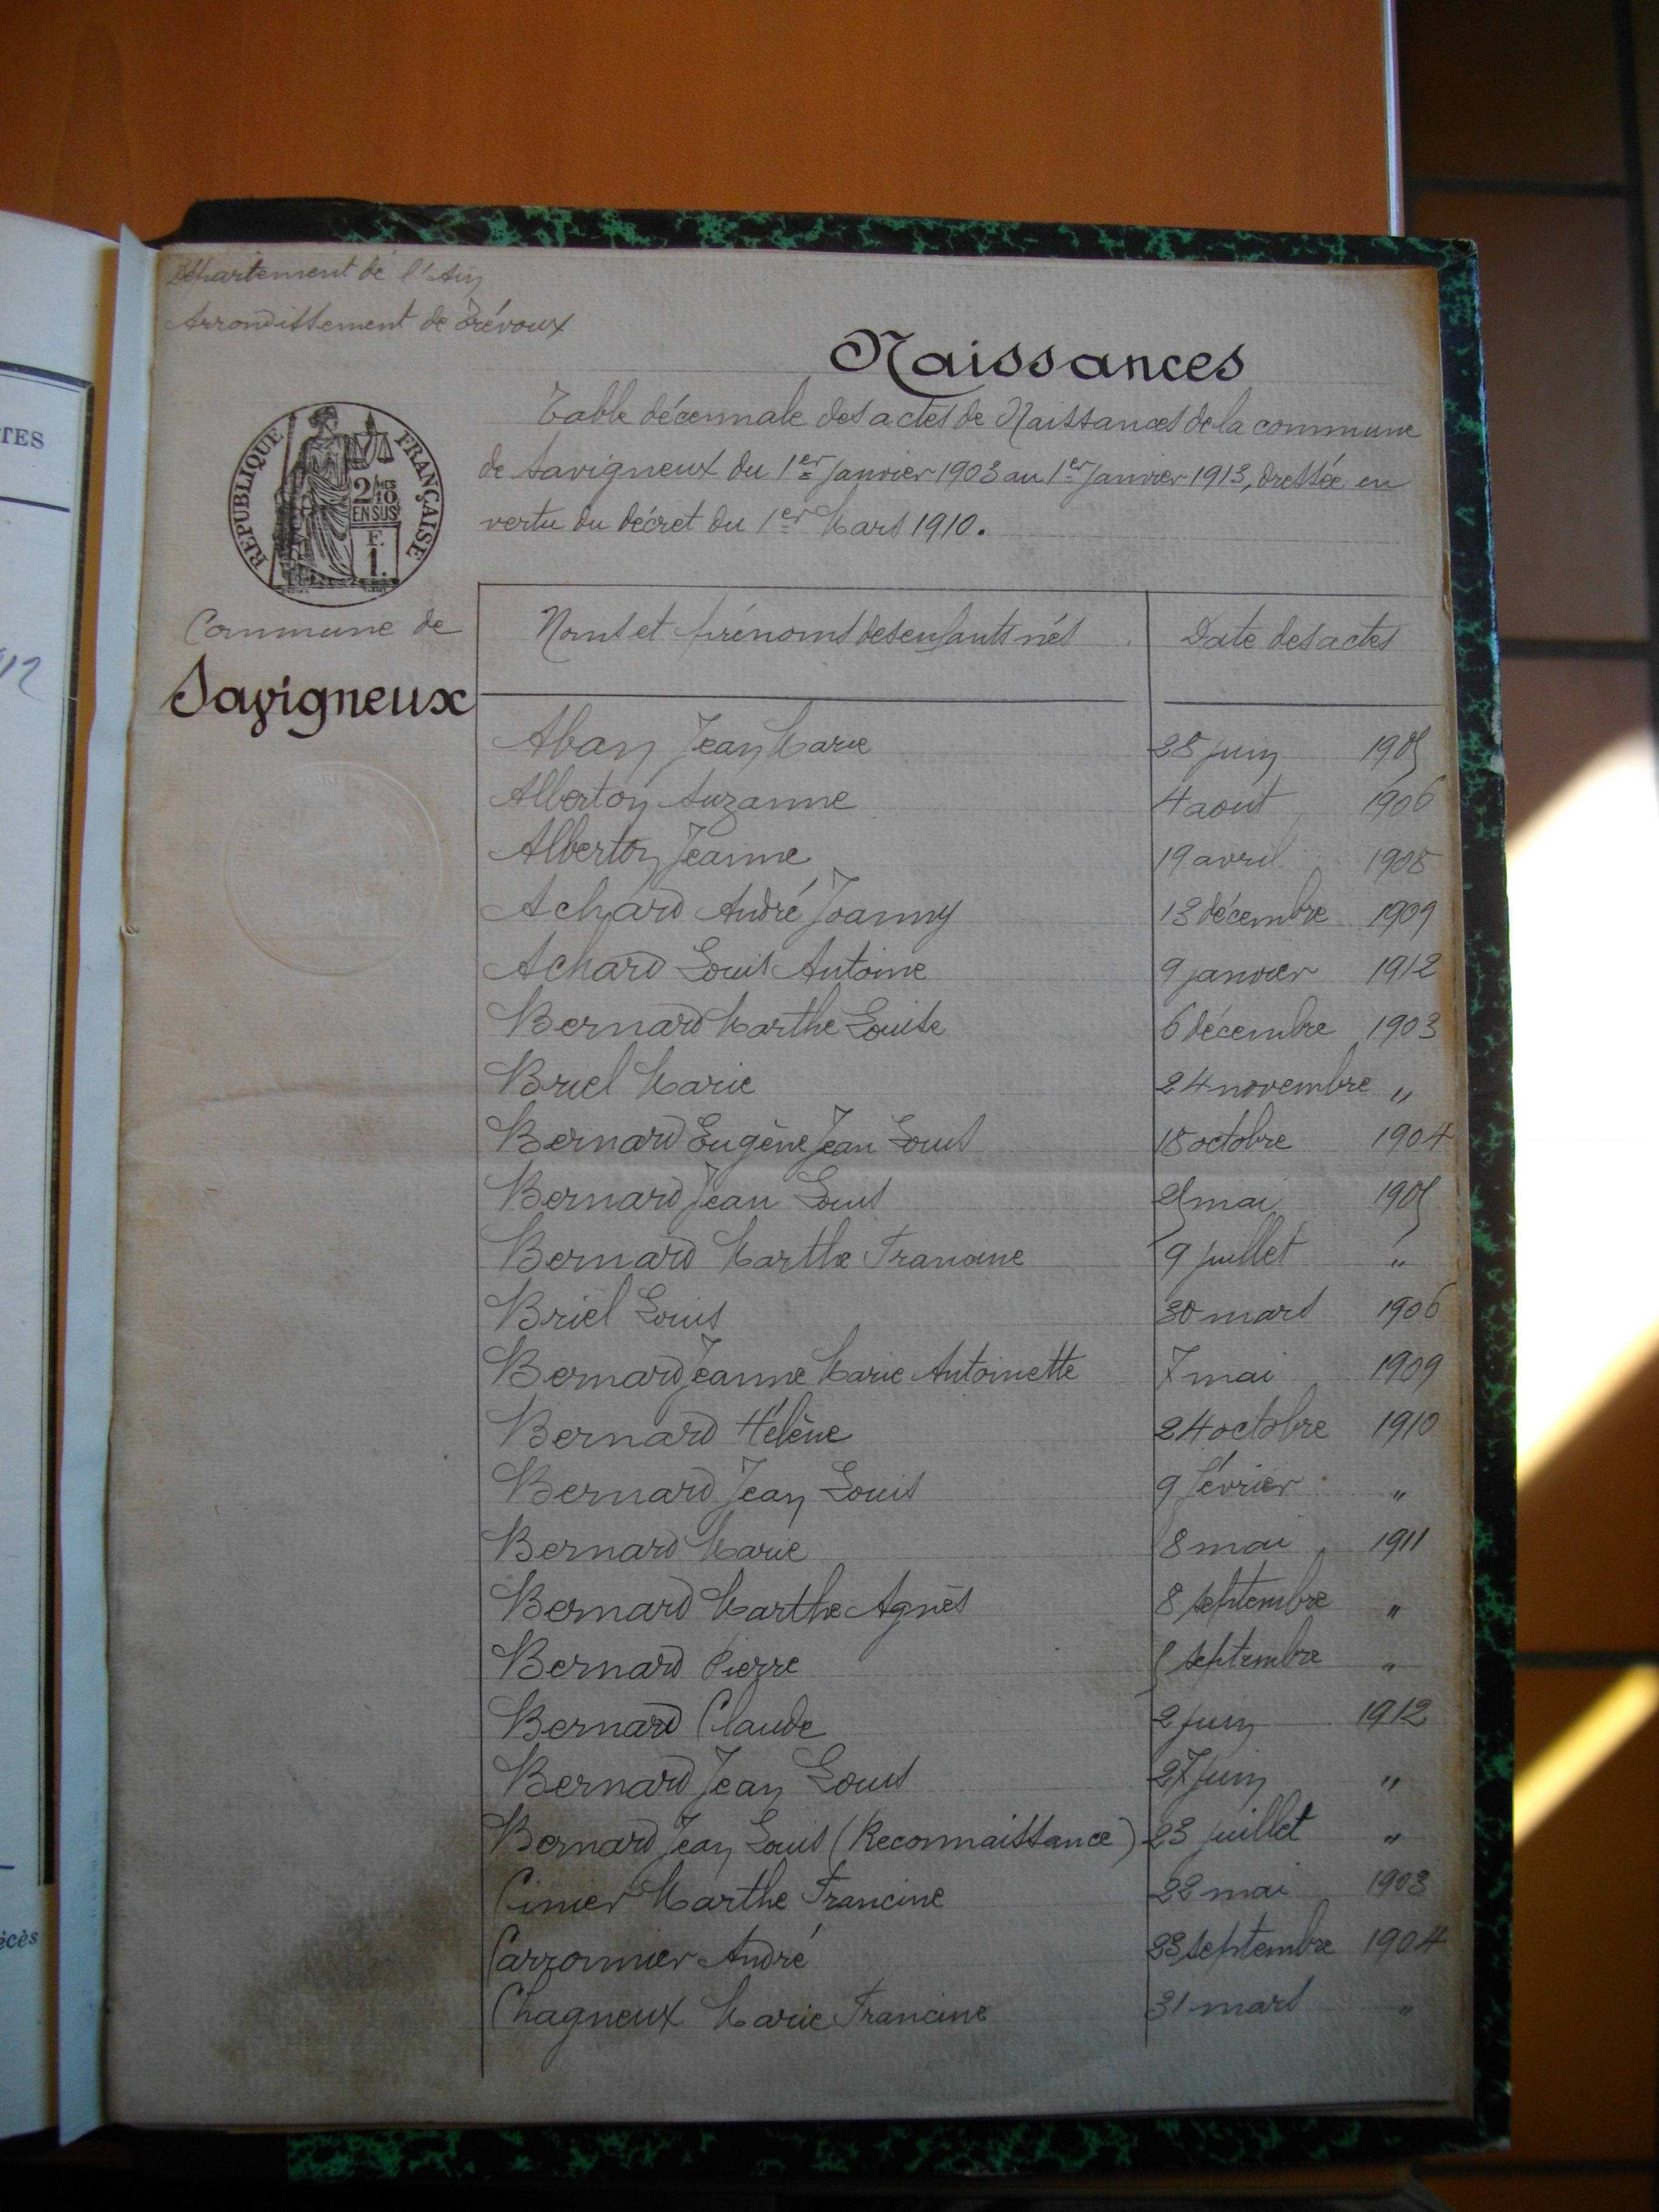 Département de l'Ain
Arrondissement de Trévoux
Naissances
Table décennale des actes de Naissances de la commune
de Savigneux du 1er Janvier 1903 au 1er Janvier 1913, dressée en
vertu du décret du 1er Mars 1910.
RÉPUBLIQUE FRANÇAISE
2/10 MES
EN SUS
F.
1.
Commune de
Savigneux
Noms et prénoms des enfants nés Date des actes
Aban Jean Marie 28 juin 1905
Alberton Suzanne 4 août 1906
Alberton Jeanne 19 avril 1908
Achard André Joanny 13 décembre 1909
Achard Louis Antoine 9 janvier 1912
Bernard Marthe Louise 6 décembre 1903
Briel Marie 24 novembre "
Bernard Eugène Jean Louis 18 octobre 1904
Bernard Jean Louis 25 mai 1905
Bernard Marthe Francine 9 juillet "
Briel Louis 30 mars 1906
Bernard Jeanne Marie Antoinette 7 mai 1909
Bernard Hélène 24 octobre 1910
Bernard Jean Louis 9 février "
Bernard Marie 8 mai 1911
Bernard Marthe Agnès 8 septembre "
Bernard Pierre septembre "
Bernard Claude 2 juin 1912
Bernard Jean Louis 27 juin "
Bernard Jean Louis (Reconnaissance) 23 juillet "
Cimier Marthe Francine 22 mai 1903
Carronnier André 23 septembre 1904
Chagneux Marie Francine 31 mars "
TES
12
écès